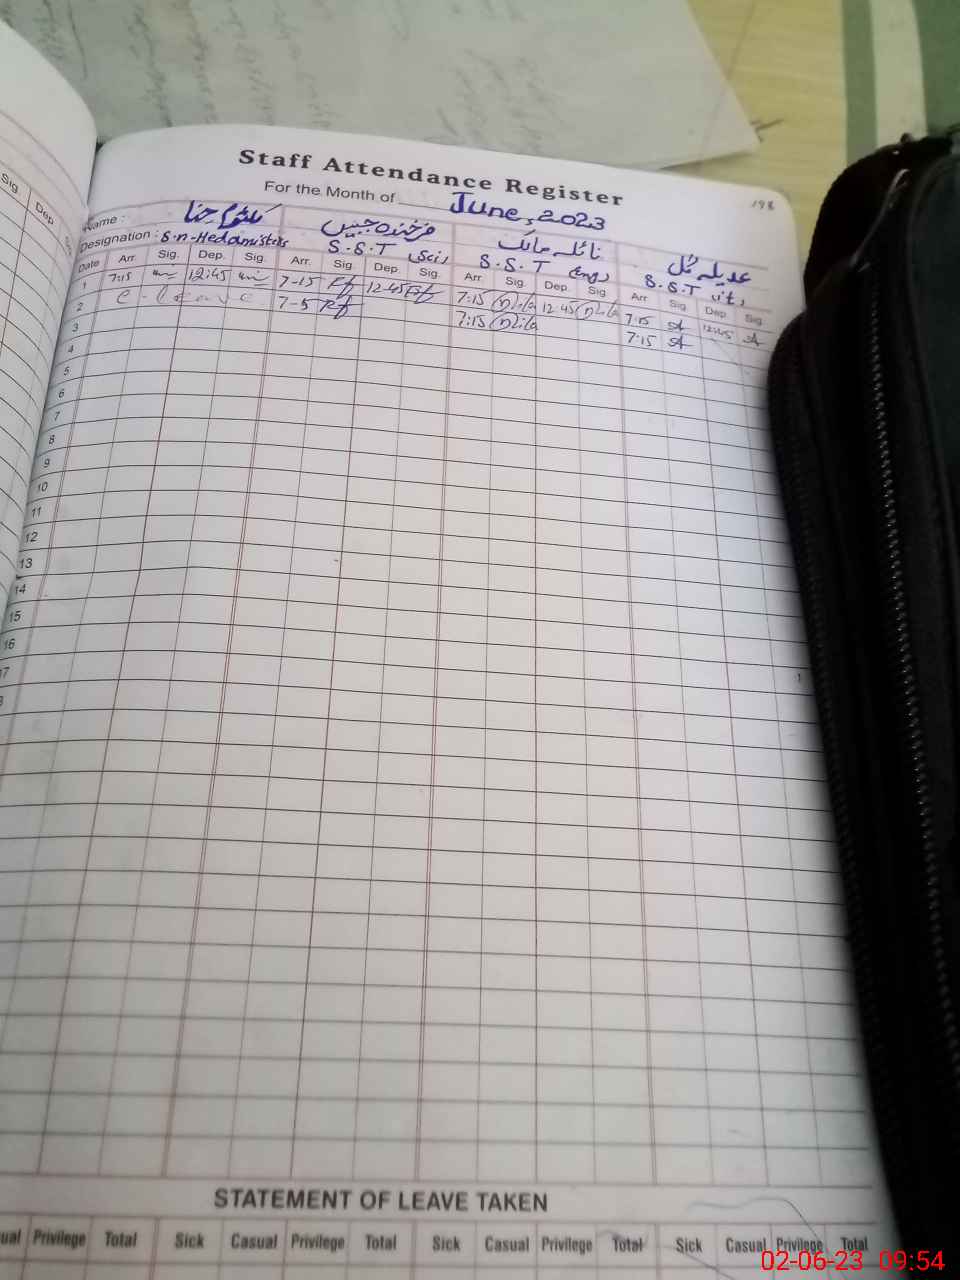 Sig. Dep.
198
Staff Attendance Register
For the Month of June, 2023
Name : کلثوم حنا فرخندہ جبیں نائلہ مالک عدیلہ گل
Designation : S.n-Hedamisters S.S.T Sci, S.S.T Eng, S.S.T it,
Date Arr. Sig. Dep. Sig. Arr. Sig. Dep. Sig. Arr. Sig. Dep. Sig. Arr. Sig. Dep. Sig.
1 7:15 12:45 7-15 12-45 7:15 12:45 7:15 12:45
2 7-5 7:15 7:15
3
4
5
6
7
8
9
10
11
12
13
14
15
16
17
STATEMENT OF LEAVE TAKEN
ual Privilege Total Sick Casual Privilege Total Sick Casual Privilege Total Sick Casual Privilege Total
02-06-23 09:54